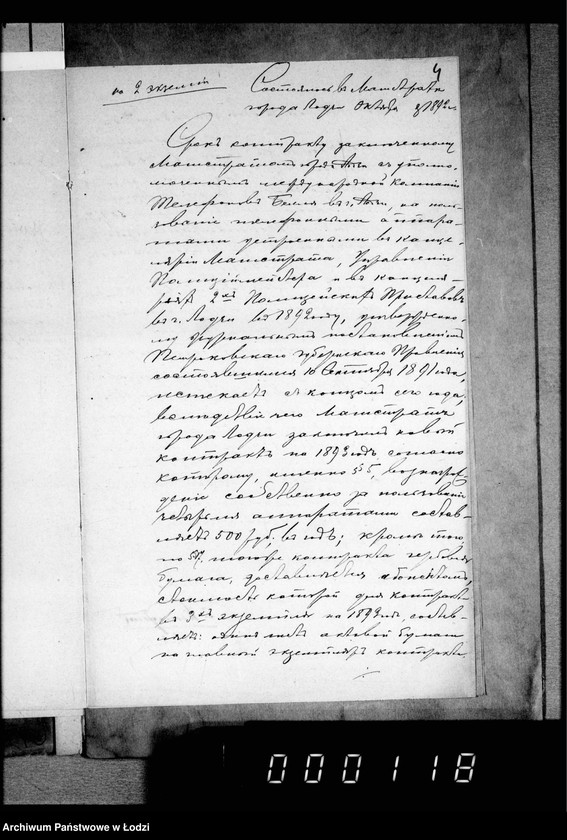 4
въ 2 экземпл
Состоялось въ Магистратѣ
города Лодзи Октября 1892 г.
Срокъ контракту заключенному
Магистратомъ города Лодзи съ уполно-
моченнымъ международной Компаніи
Телефоновъ Белля въ г. Лодзи, на поль-
зованіе телефонными аппара-
тами устроенными въ канце-
ляріи Магистрата, Управленіи
Полиціймейстера и въ канцеля-
ріяхъ 2хъ Полицейскихъ Приставовъ
въ г. Лодзи въ 1892 году, утвержденно-
му журнальнымъ постановленіемъ
Петроковскаго Губернскаго Правленія
состоявшимся 10 Сентября 1891 года,
истекаетъ съ концомъ сего года,
вслѣдствіе чего Магистратъ
города Лодзи заключилъ новый
контрактъ на 1893 годъ, согласно
которому, именно § 5, вознаграж-
деніе собственно за пользованіе
четырьмя аппаратами состав-
ляетъ 500 руб. въ годъ; кромѣ того
по § тогоже контракта гербовая
бумага, доставляется абонентомъ,
стоимость которой для контракта
въ 3хъ экземплярахъ на 1893 годъ, состав-
ляетъ: одинъ листъ актовой бумаги
на главный экземпляръ контракта
000118
Archiwum Państwowe w Łodzi